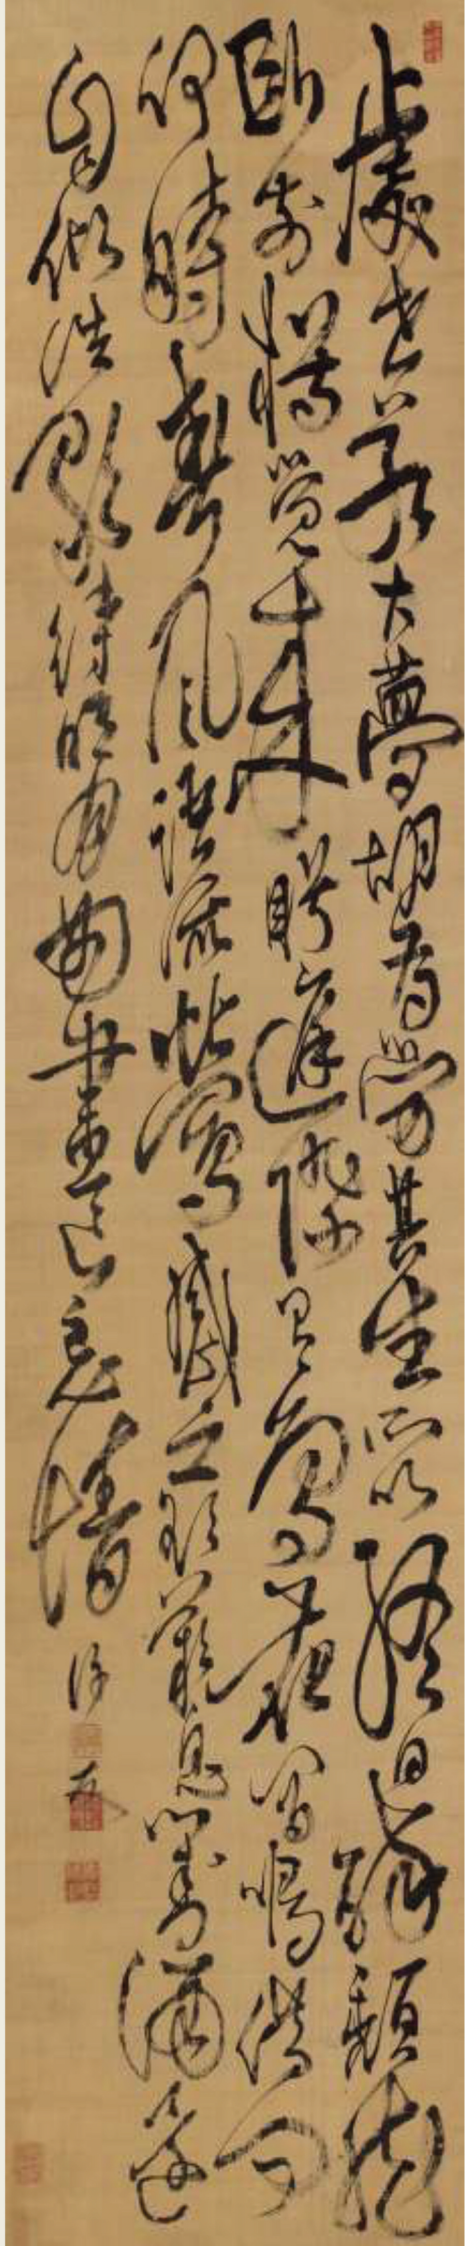 處世若大夢胡為勞其生所以終日醉頹然
臥前楹覺來眄庭際鳥花間鳴借問
何時春風語流鶯感之欲歎息對酒還
自傾浩歌待明月曲盡已忘情
許友